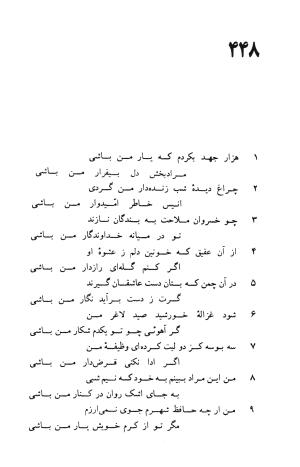 ۴۴۸
۱ هزار جهد بکردم که یار من باشی
مرادبخش دل بیقرار من باشی
۲ چراغ دیدهٔ شب زنده‌دار من گردی
انیس خاطر امّیدوار من باشی
۳ چو خسروان ملاحت به بندگان نازند
تو در میانه خداوندگار من باشی
۴ از آن عقیق که خونین دلم ز عشوهٔ او
اگر کنم گله‌ای رازدار من باشی
۵ در آن چمن که بتان دست عاشقان گیرند
گرت ز دست برآید نگار من باشی
۶ شود غزالهٔ خورشید صید لاغر من
گر آهوئی چو تو یکدم شکار من باشی
۷ سه بوسه کز دو لبت کرده‌ای وظیفهٔ من
اگر ادا نکنی قرض‌دار من باشی
۸ من این مراد ببینم به خود که نیم شبی
به جای اشک روان در کنار من باشی
۹ من ار چه حافظ شهرم جوی نمی‌ارزم
مگر تو از کرم خویش یار من باشی